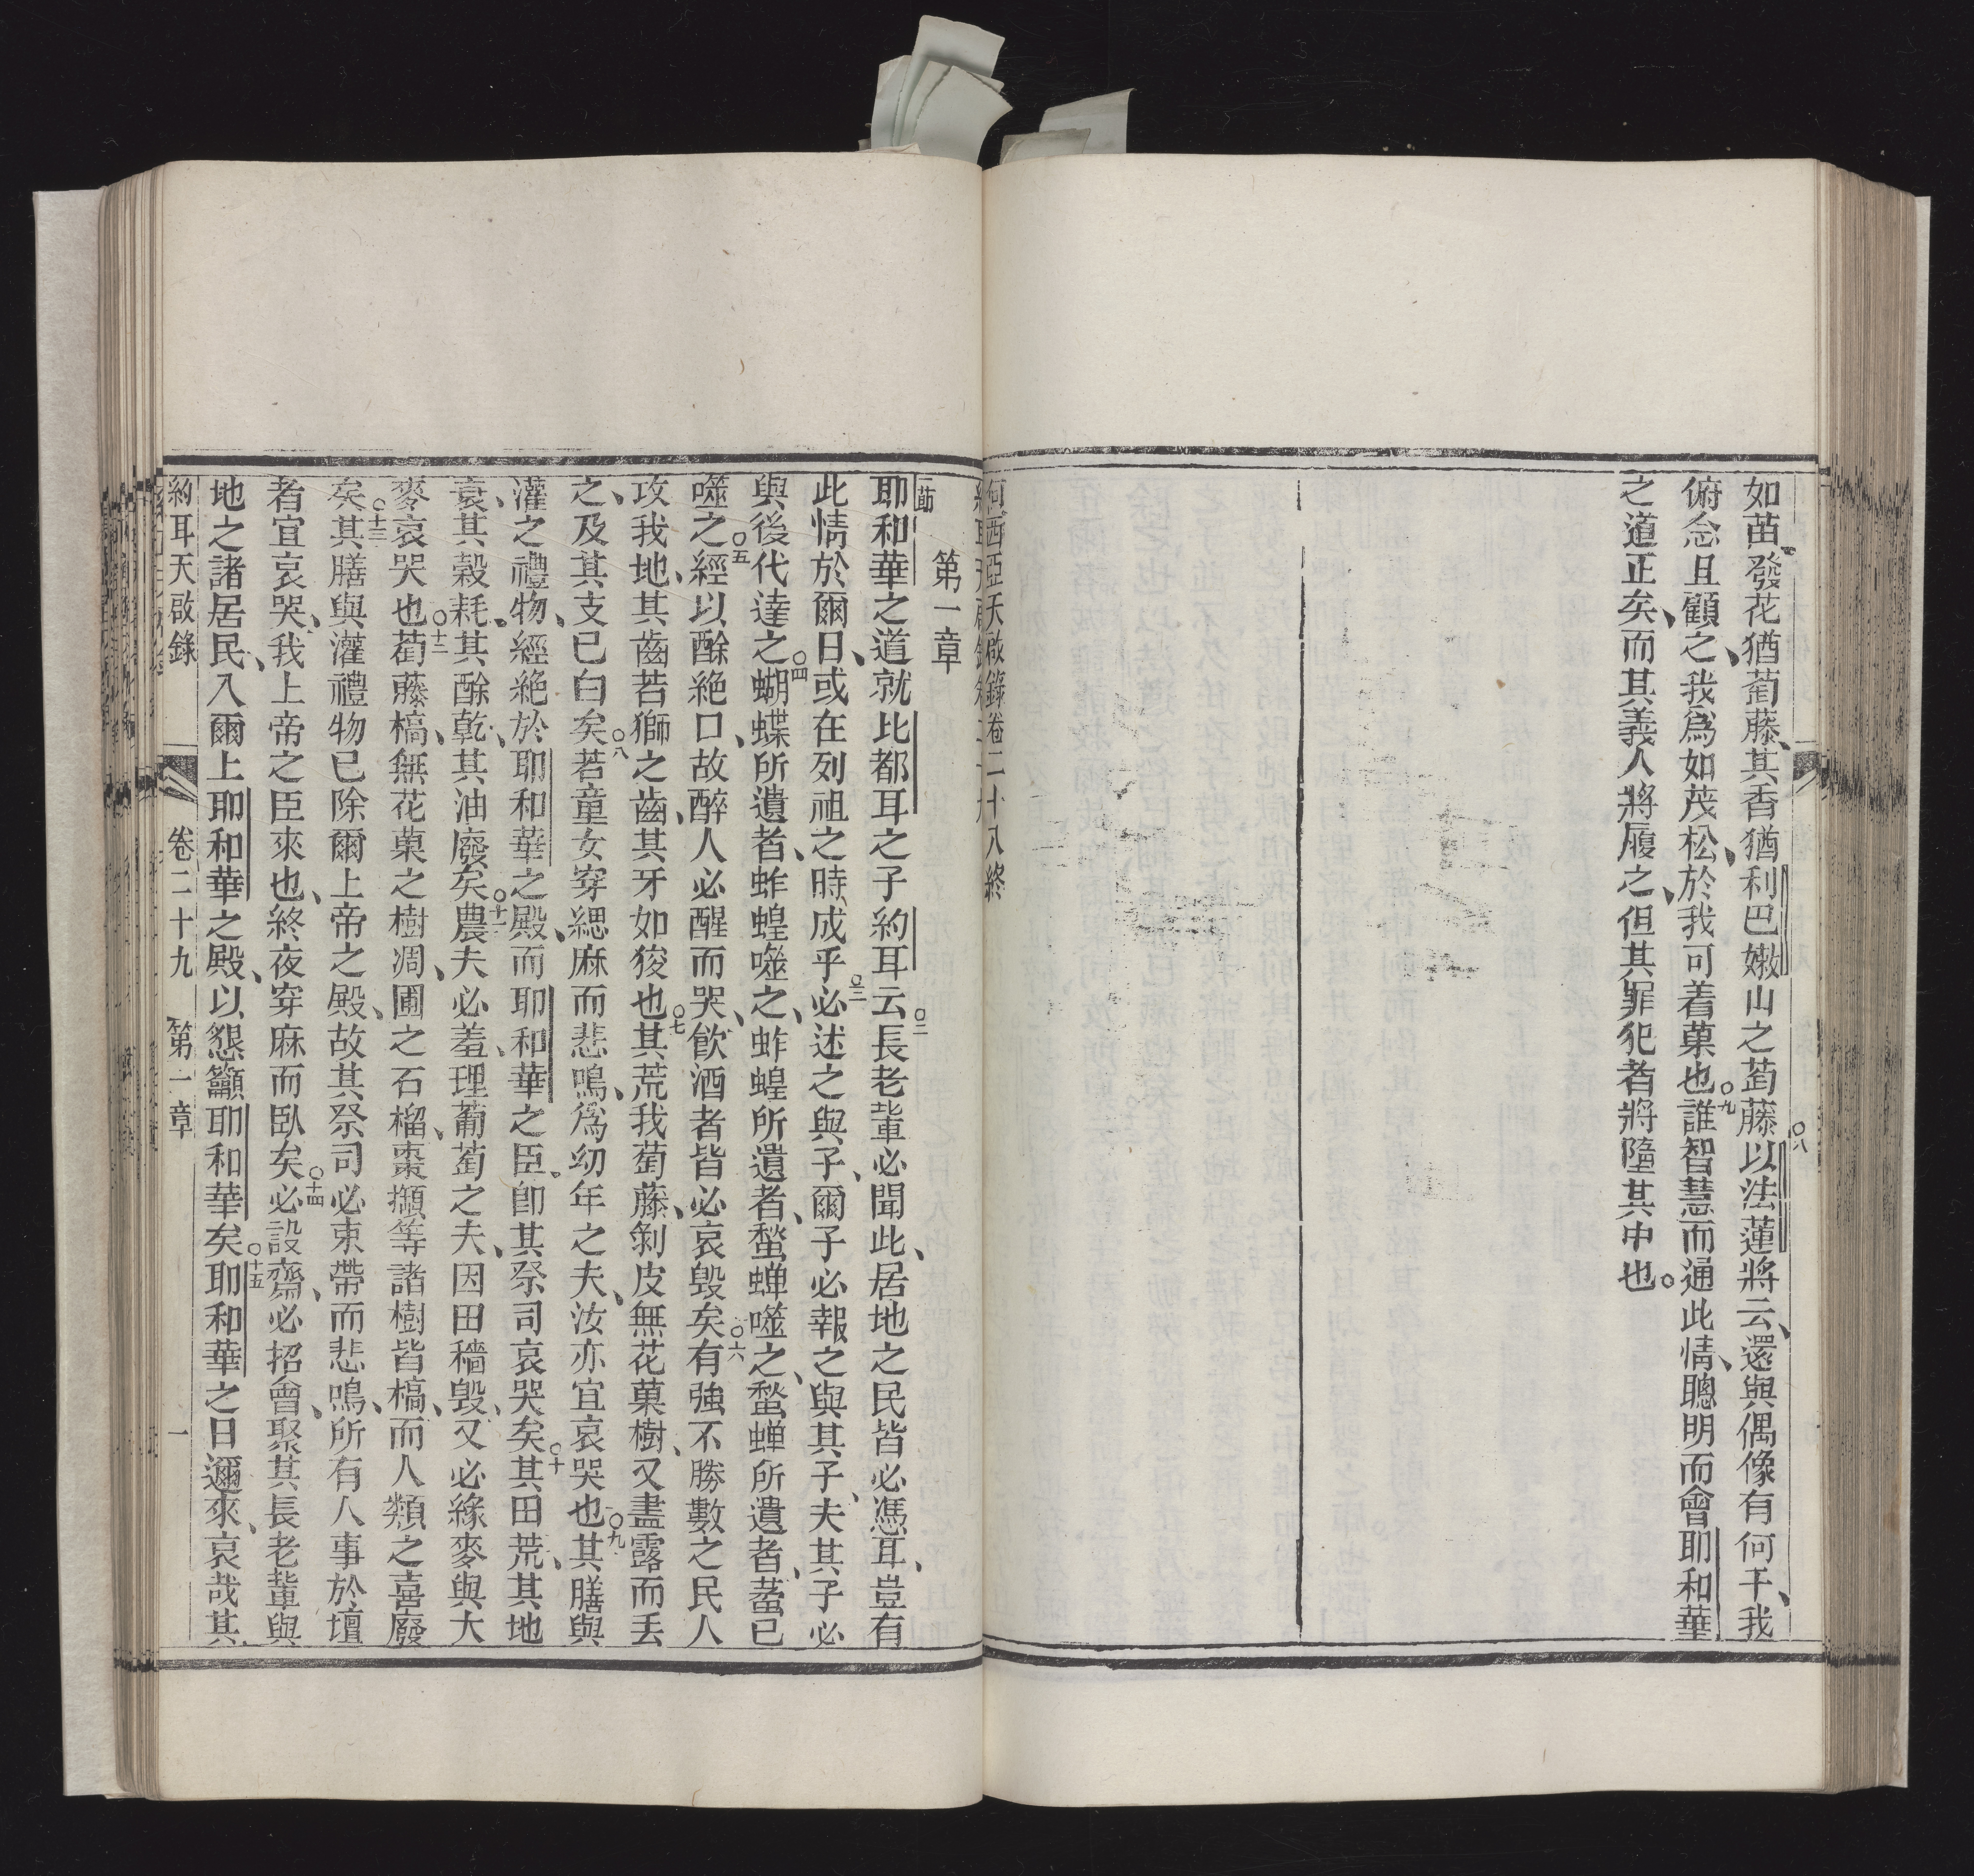 如苗、發花猶萄藤、其香猶利巴嫩山之萄藤○八以法蓮將云、還與偶像有何干、我
俯念且顧之、我為如茂松、於我可着菓也○九誰智慧而通此情、聰明而會耶和華
之道正矣、而其義人將履之、但其罪犯者將隨其中也。
何西亞天啟錄卷二十八終
第一章
耶和華之道就比都耳之子約耳云○二長老輩必聞此、居地之民皆必憑耳、豈有
此情於爾日、或在列祖之時、成乎○三必述之與子、爾子必報之與其子、夫其子必
與後代達之○四蝴蝶所遺者、蚱蝗噬之、蚱蝗所遺者、蝥蟬噬之、蝥蟬所遺者、蟊已
噬之○五經以酴絶口、故醉人必醒而哭、飲酒者皆必哀毀矣○六有強不勝數之民人
攻我地、其齒若獅之齒、其牙如狻也○七其荒我萄藤、剝皮無花菓樹、又盡露而丢
之、及其支已白矣○八若童女穿緦麻而悲鳴、為幼年之夫、汝亦宜哀哭也○九其膳與
灌之禮物、經絶於耶和華之殿、而耶和華之臣。卽其祭司哀哭矣○十其田荒、其地
哀、其穀耗、其酴乾、其油廢矣○十一農夫必羞、理葡萄之夫、因田穡毀、又必緣麥與大
麥哀哭也○十二萄藤槁、無花菓之樹凋、圃之石榴、棗擷等諸樹皆槁、而人類之喜廢
矣○十三其膳與灌禮物已除爾上帝之殿、故其祭司必束帶而悲鳴、所有人事於壇
者宜哀哭、我上帝之臣來也、終夜穿麻而臥矣○十四必設齋、必招會、聚其長老輩與
地之諸居民、入爾上耶和華之殿、以懇籲耶和華矣○十五耶和華之日邇來、哀哉其
約耳天啟錄 卷二十九 第一章 一